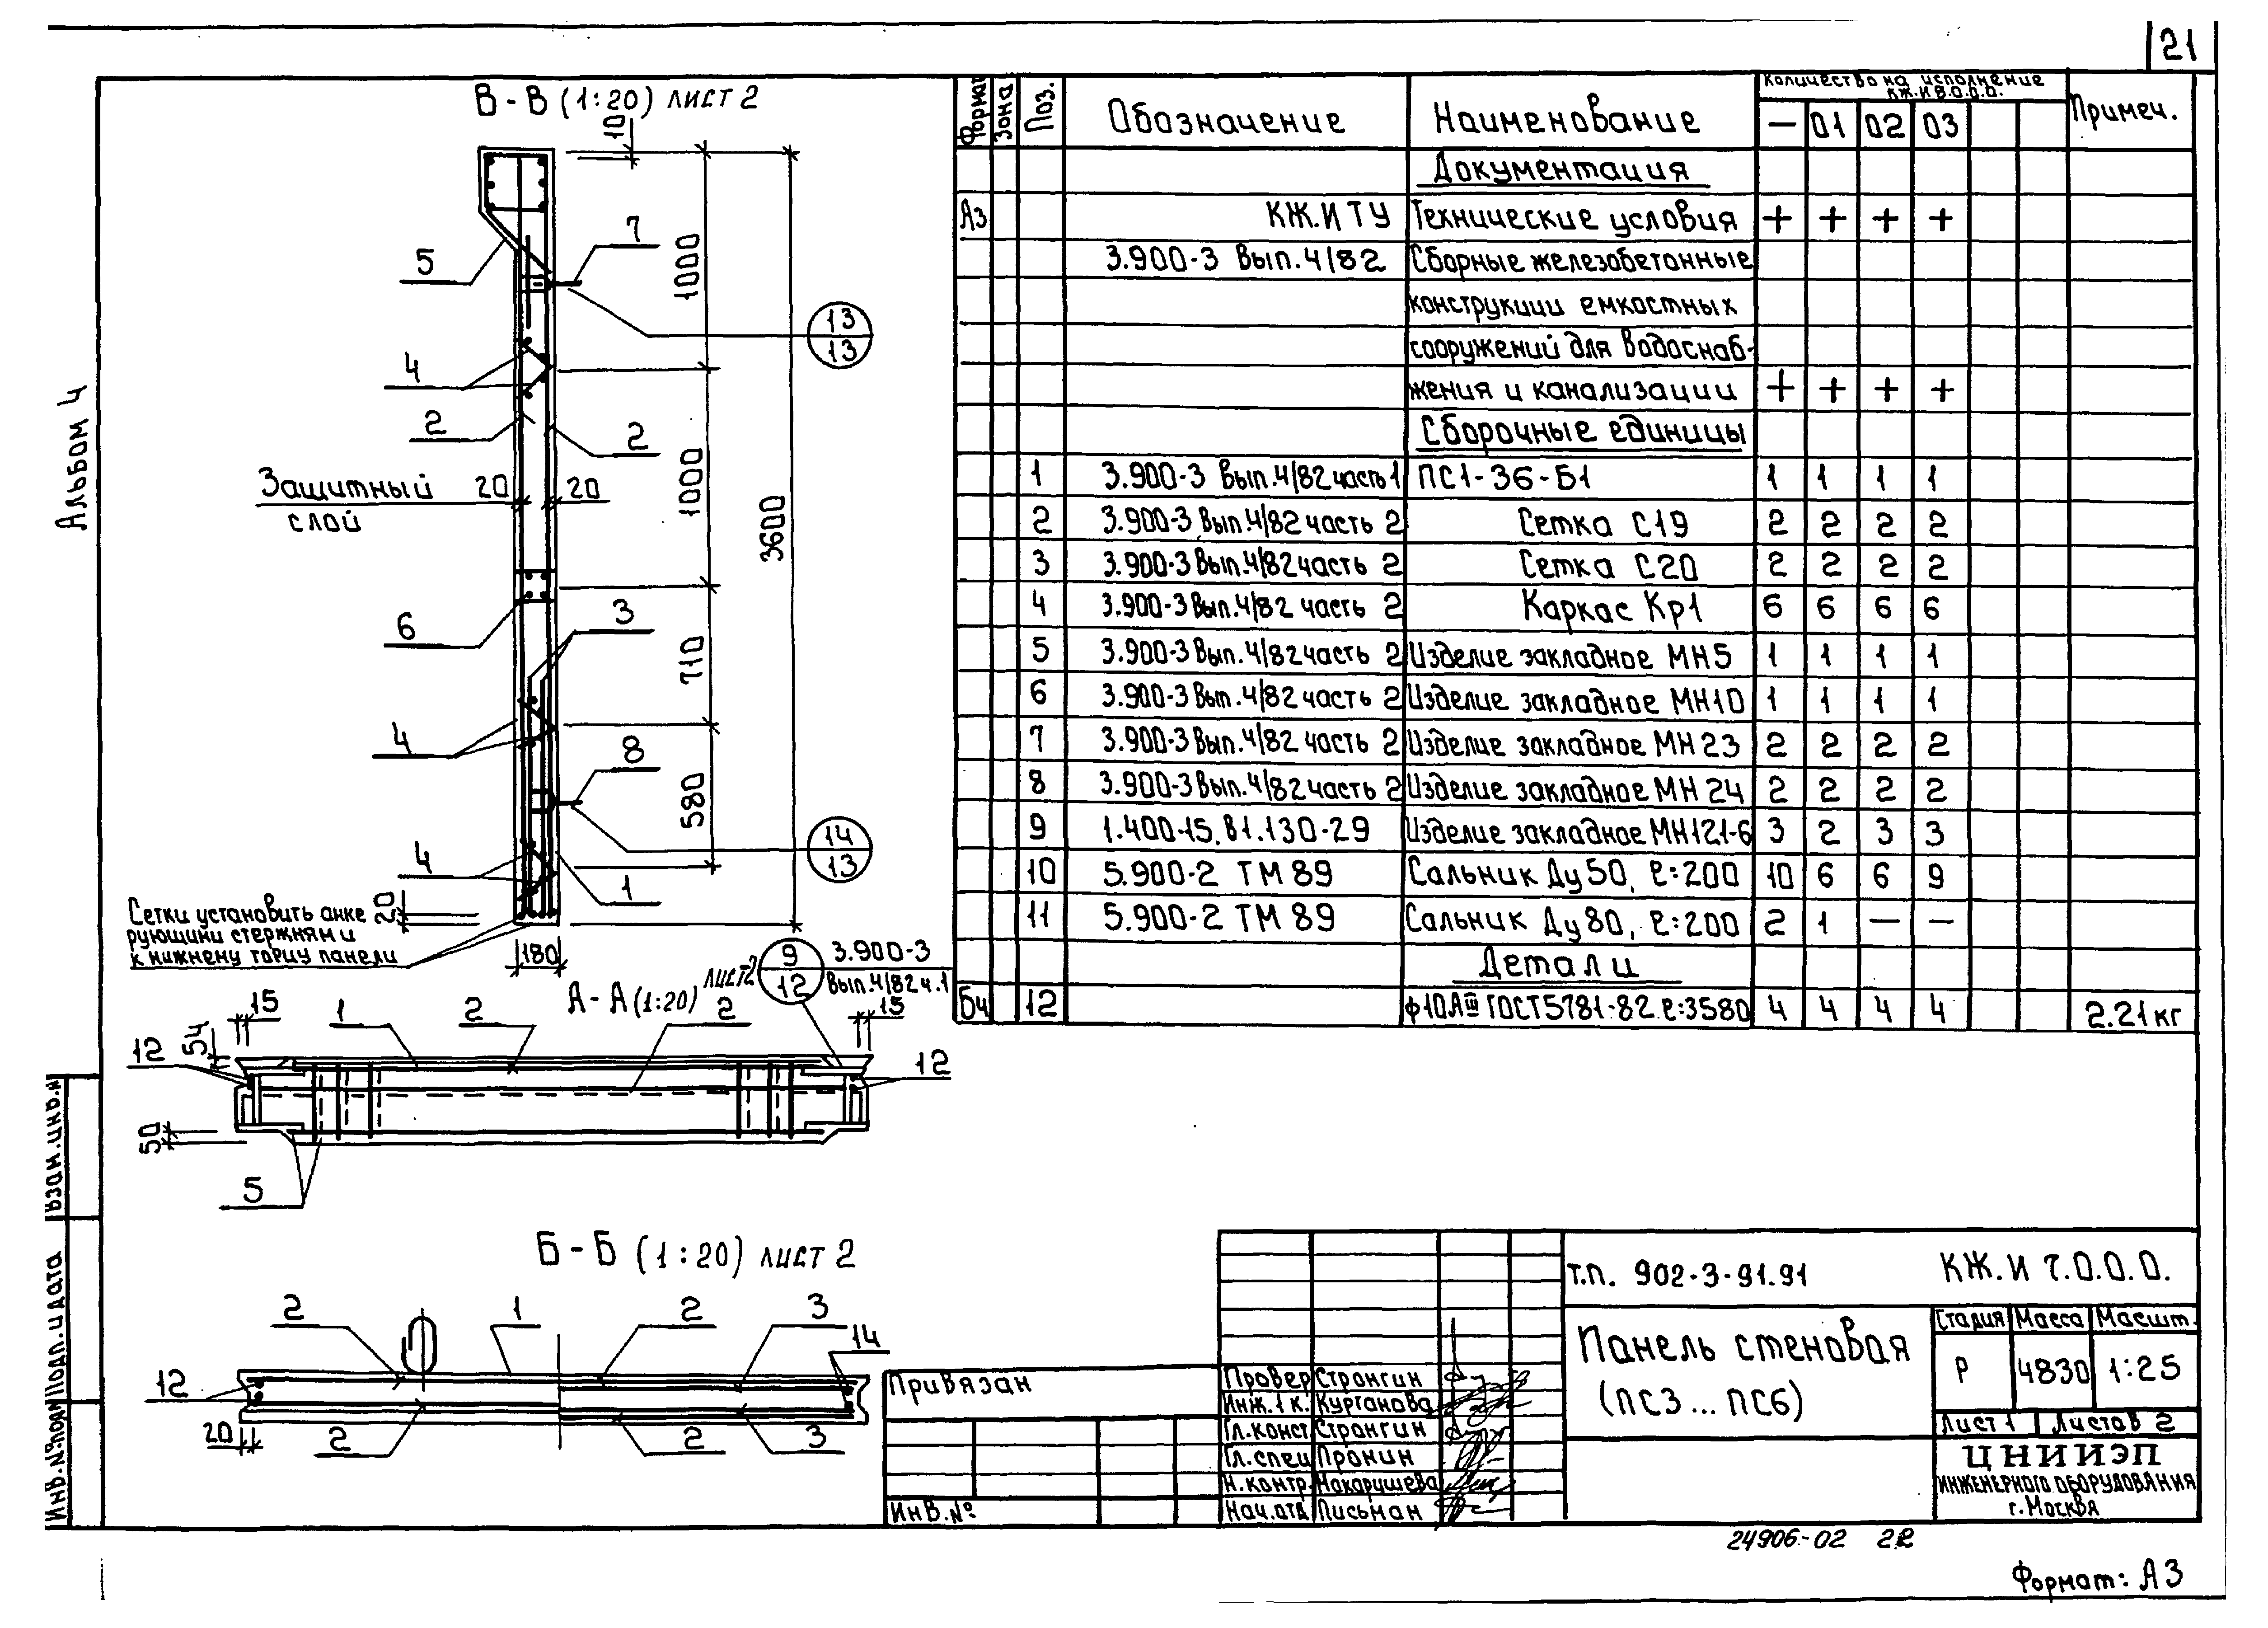 21
Альбом 4
В - В (1:20) лист 2
10
7
5
1000
13
13
4
2
2
Защитный слой
20
20
1000
3600
6
3
710
4
8
580
14
13
4
1
20
Сетки установить анке
рующими стержнями
к нижнему торцу панели
180
А - А (1:20) лист 2
9
12
3.900-3
Вып.4/82 ч.1
15
1
2
2
15
54
12
12
50
5
Б - Б (1:20) лист 2
2
1
2
3
14
12
20
2
2
3
Формат Зона Поз. Обозначение Наименование Количество на исполнение КЖ.И 8.0.0.0. Примеч.
— 01 02 03
Документация
А3 КЖ.И ТУ Технические условия + + + +
3.900-3 Вып.4/82 Сборные железобетонные
конструкции емкостных
сооружений для водоснаб-
жения и канализации + + + +
Сборочные единицы
1 3.900-3 Вып.4/82 часть 1 ПС1-36-Б1 1 1 1 1
2 3.900-3 Вып.4/82 часть 2 Сетка С19 2 2 2 2
3 3.900-3 Вып.4/82 часть 2 Сетка С20 2 2 2 2
4 3.900-3 Вып.4/82 часть 2 Каркас Кр1 6 6 6 6
5 3.900-3 Вып.4/82 часть 2 Изделие закладное МН5 1 1 1 1
6 3.900-3 Вып.4/82 часть 2 Изделие закладное МН10 1 1 1 1
7 3.900-3 Вып.4/82 часть 2 Изделие закладное МН23 2 2 2 2
8 3.900-3 Вып.4/82 часть 2 Изделие закладное МН24 2 2 2 2
9 1.400-15.В1.130-29 Изделие закладное МН121-6 3 2 3 3
10 5.900-2 ТМ 89 Сальник Ду50, ℓ:200 10 6 6 9
11 5.900-2 ТМ 89 Сальник Ду80, ℓ:200 2 1 — —
Детали
Бч 12 ф10АIII ГОСТ 5781-82 ℓ:3580 4 4 4 4 2.21кг
Т.П. 902-3-91.91 КЖ.И 7.0.0.0.
Панель стеновая
(ПС3...ПС6)
Стадия Масса Масшт.
Р 4830 1:25
Лист 1 Листов 2
ЦНИИЭП
ИНЖЕНЕРНОГО ОБОРУДОВАНИЯ
г.Москва
Провер. Стронгин
Инж.1к. Курганова
Гл.конст. Стронгин
Гл.спец Пронин
Н.контр. Макаричева
Нач.отд Письман
Привязан
Инв.№
Взам.инв.№
Подп.и дата
Инв.№подл
24906-02 22
Формат: А3